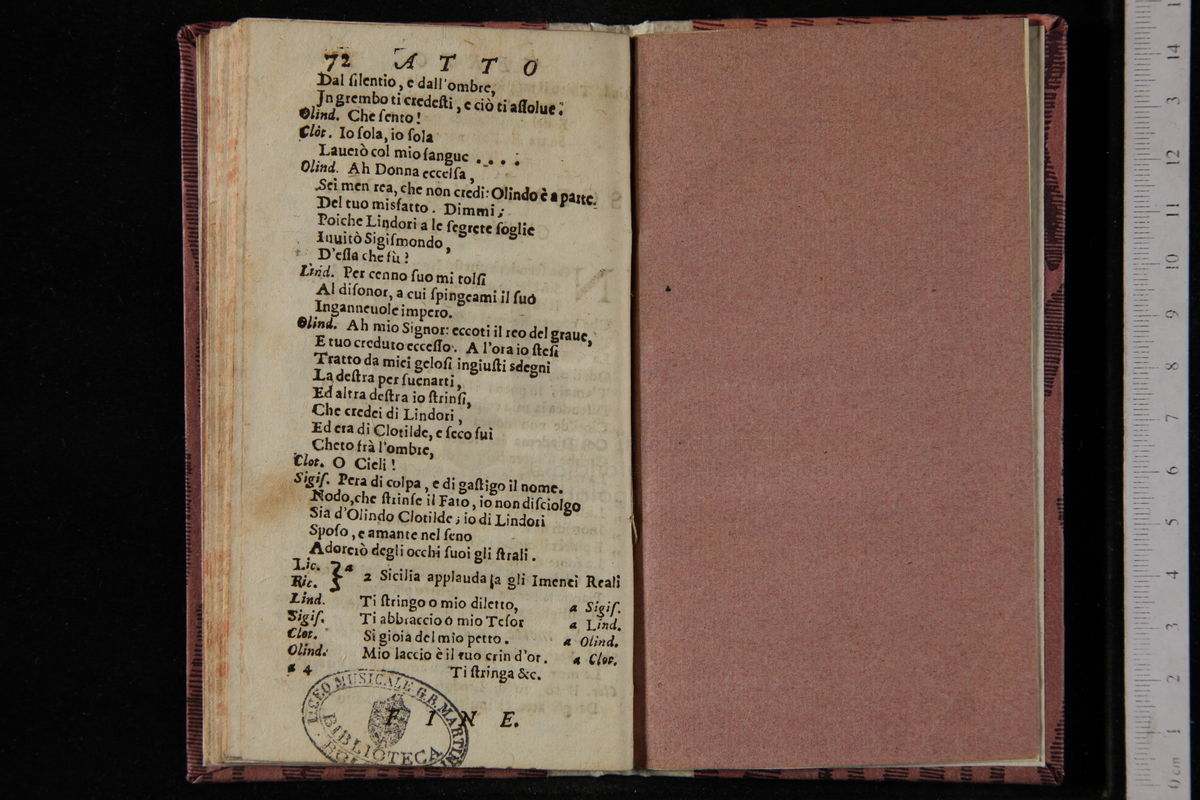 72 ATTO
Dal ſilentio, e dall'ombre,
Jn grembo ti credeſti, e ciò ti aſſolue.
Olind. Che ſento!
Clot. Io ſola, io ſola
Lauerò col mio ſangue ....
Olind. Ah Donna eccelſa,
Sei men rea, che non credi: Olindo è a parte.
Del tuo misfatto. Dimmi;
Poiche Lindori a le ſegrete ſoglie
Inuitò Sigiſmondo,
D'eſſa che fù?
Lind. Per cenno ſuo mi tolſi
Al diſonor, a cui ſpingeami il ſuo
Inganneuole impero.
Olind. Ah mio Signor: eccoti il reo del graue,
E tuo creduto ecceſſo. A l'ora io ſteſi
Tratto da miei geloſi ingiuſti sdegni
La deſtra per ſuenarti,
Ed altra deſtra io ſtrinſi,
Che credei di Lindori,
Ed era di Clotilde, e ſeco fui
Cheto frà l'ombre,
Clot. O Cieli!
Sigiſ. Pera di colpa, e di gaſtigo il nome.
Nodo, che ſtrinſe il Fato, io non diſciolgo
Sia d'Olindo Clotilde; io di Lindori
Spoſo, e amante nel ſeno
Adorerò degli occhi ſuoi gli ſtrali.
Lic.
Ric. } a 2 Sicilia applauda a gli Imenei Reali
Lind. Ti ſtringo o mio diletto, a Sigiſ.
Sigiſ. Ti abbraccio o mio Teſor a Lind.
Clot. Sì gioia del mio petto. a Olind.
Olind. Mio laccio è il tuo crin d'or. a Clot.
a 4 Ti ſtringa &c.
FINE.
LICEO MUSICALE G.B. MARTINI
BIBLIOTECA